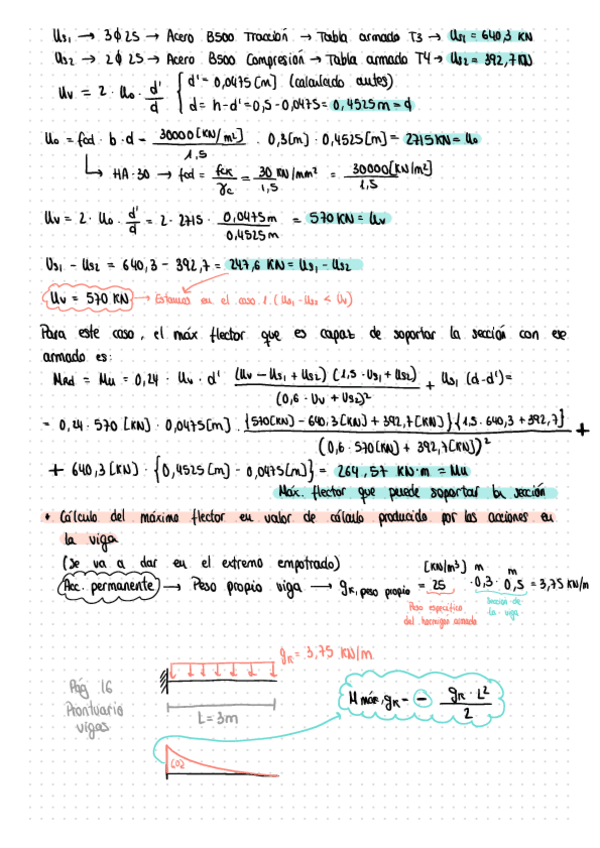 Us₁ → 3ϕ25 → Acero B500 Tracción → Tabla armado T3 → Us₁ = 640,3 KN
Us₂ → 2ϕ25 → Acero B500 Compresión → Tabla armado T4 → Us₂ = 392,7 KN
Uv = 2 · Uo · d'/d { d' = 0,0475 [m] (calculado antes)
d = h - d' = 0,5 - 0,0475 = 0,4525 m = d
Uo = fcd · b · d = 30000 [KN/m²]/1,5 · 0,3[m] · 0,4525[m] = 2715 KN = Uo
↳ HA·30 → fcd = fck/γc = 30 KN/mm²/1,5 = 30000 [KN/m²]/1,5
Uv = 2 · Uo · d'/d = 2 · 2715 · 0,0475m/0,4525m = 570 KN = Uv
Us₁ - Us₂ = 640,3 - 392,7 = 247,6 KN = Us₁ - Us₂
Uv = 570 KN → Estamos en el caso 1. (Us₁ - Us₂ < Uv)
Para este caso, el máx flector que es capaz de soportar la sección con ese
armado es:
MRd = Mu = 0,24 · Uv · d' (Uv - Us₁ + Us₂) (1,5 · Us₁ + Us₂)/(0,6 · Uv + Us₂)² + Us₁ (d-d') =
= 0,24 · 570 [KN] · 0,0475[m] · {570[KN] - 640,3[KN] + 392,7[KN]}{1,5 · 640,3 + 392,7}/(0,6 · 570[KN] + 392,7[KN])² +
+ 640,3[KN] · {0,4525[m] - 0,0475[m]} = 264,57 KN·m = Mu
Máx. flector que puede soportar la sección
• Cálculo del máximo flector en valor de cálculo producido por las acciones en
la viga
(se va a dar en el extremo empotrado)
Acc. permanente → Peso propio viga → gk, peso propio = 25 [KN/m³] · 0,3 m · 0,5 m = 3,75 KN/m
Peso específico
del hormigón armado
Sección de
la viga
gk = 3,75 KN/m
Pág 16
Prontuario
vigas
L = 3m
M máx, gk = - gk · L²/2